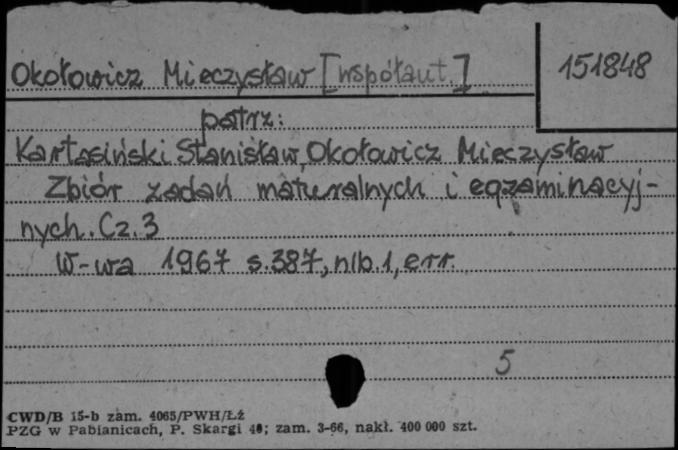 Okołowicz Mieczysław [współaut.]
151848
patrz:
Kartasiński Stanisław, Okołowicz Mieczysław
Zbiór zadań maturalnych i egzaminacyj-
nych. Cz. 3
W-wa 1967 s. 387, nlb. 1, err.
5
CWD/B 15-b zam. 4065/PWH/Łź
PZG w Pabianicach, P. Skargi 40; zam. 3-66, nakł. 400 000 szt.